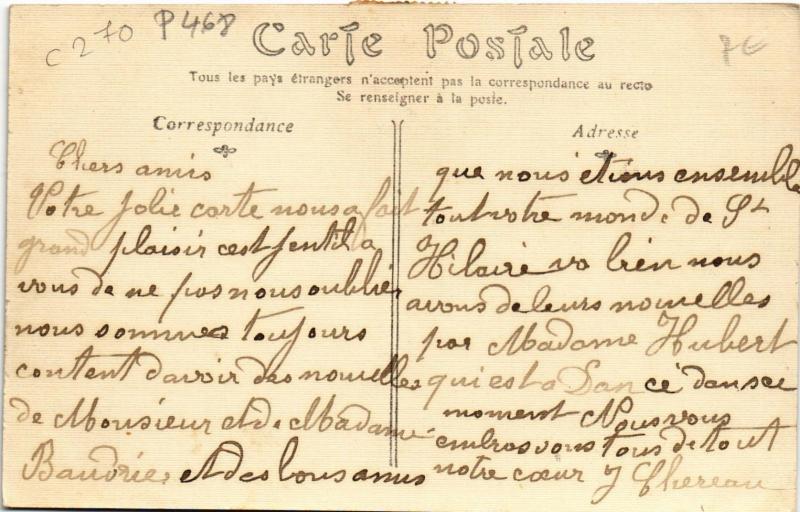 C 270 P468
7€
Carte Postale
Tous les pays étrangers n'acceptent pas la correspondance au recto
Se renseigner à la poste.
Correspondance
Chers amis
Votre jolie carte nous a fait
grand plaisir c'est jentil a
vous de ne pas nous oublier
nous sommes toujours
content davoir des nouvelles
de Monsieur et de Madame
Baudrier et des bons amis
Adresse
que nous étions ensemble
tout votre monde de St
Hilaire va bien nous
avons de leurs nouvelles
par Madame Hubert
qui est a Dancé dansce
moment Nous vous
embrassons tous de tout
notre cœur J Chereau